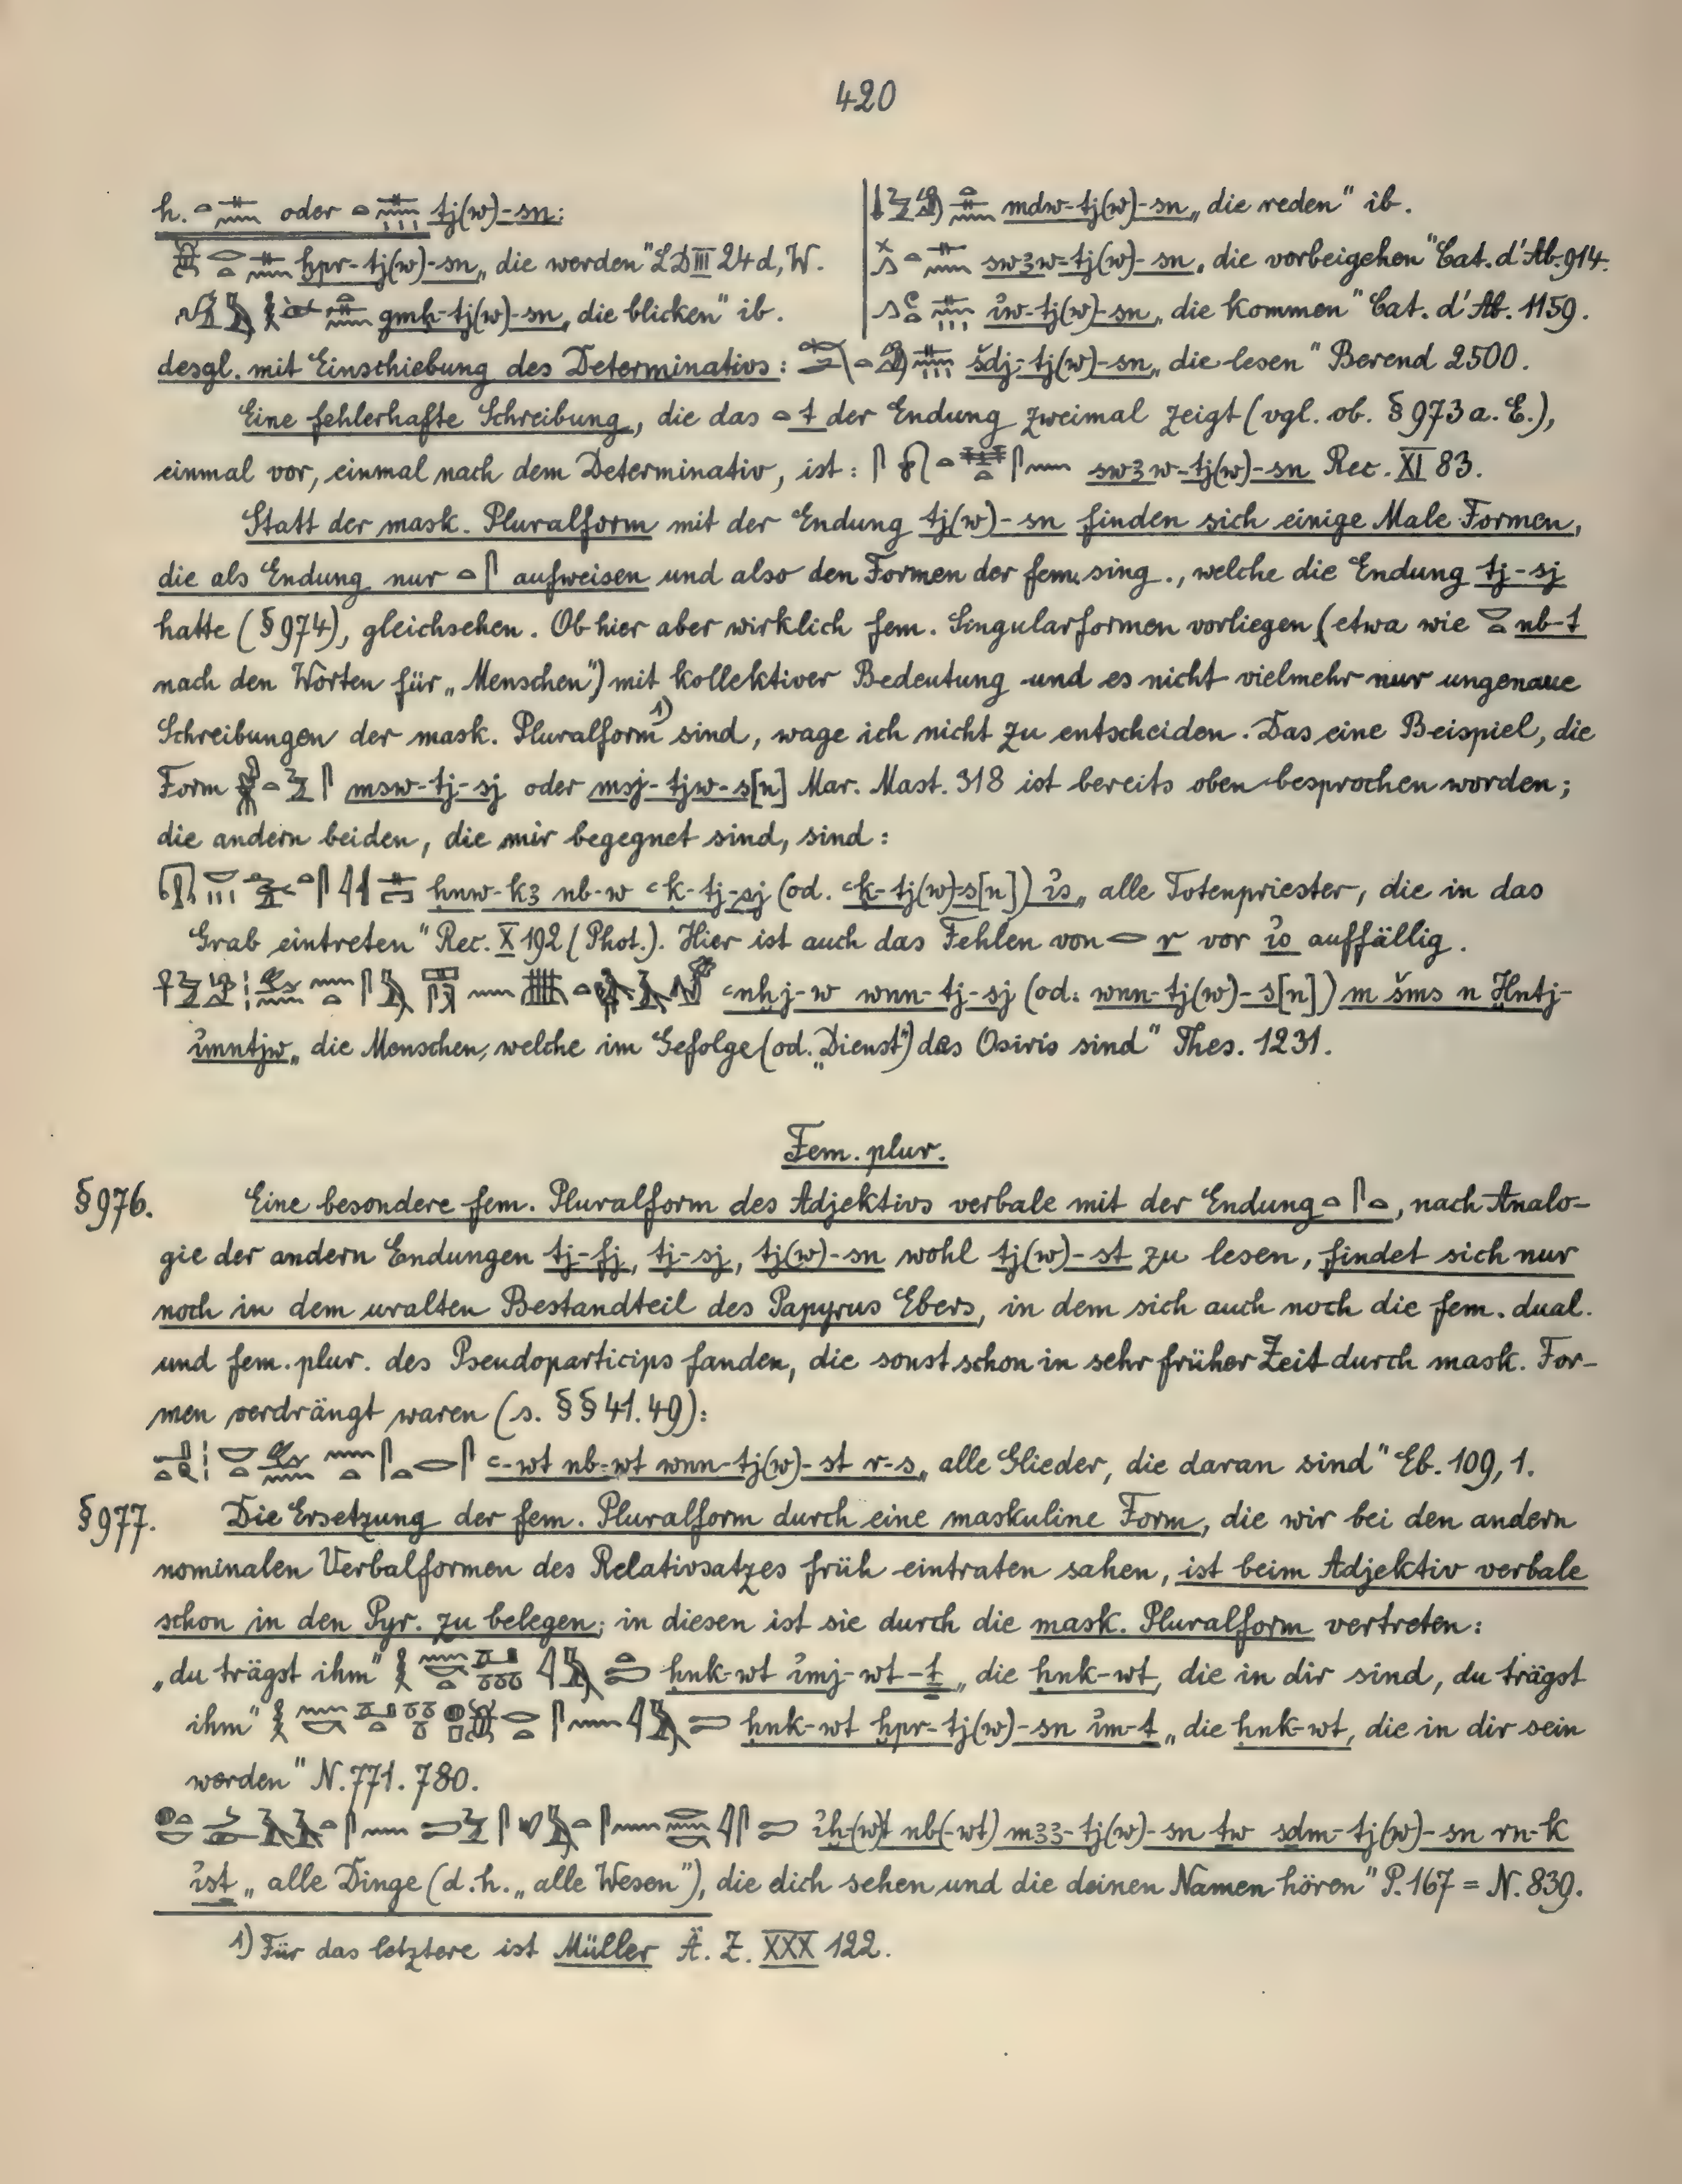 420
h. oder tj(w)-sn:
ḫpr-tj(w)-sn „die werden" LD III 24d, W.
gmḥ-tj(w)-sn „die blicken" ib.
mdw-tj(w)-sn „die reden" ib.
swꜣw-tj(w)-sn „die vorbeigehen" Cat. d'Ab. 914.
i̓w-tj(w)-sn „die kommen" Cat. d'Ab. 1159.
desgl. mit Einschiebung des Determinativs: šdj-tj(w)-sn „die lesen" Berend 2500.
Eine fehlerhafte Schreibung, die das t der Endung zweimal zeigt (vgl. ob. § 973 a. E.),
einmal vor, einmal nach dem Determinativ, ist: swꜣw-tj(w)-sn Rec. XI 83.
Statt der mask. Pluralform mit der Endung tj(w)-sn finden sich einige Male Formen,
die als Endung nur aufweisen und also den Formen der fem. sing., welche die Endung tj-sj
hatte (§ 974), gleichsehen. Ob hier aber wirklich fem. Singularformen vorliegen (etwa wie nb-t
nach den Worten für „Menschen") mit kollektiver Bedeutung und es nicht vielmehr nur ungenaue
Schreibungen der mask. Pluralform 1) sind, wage ich nicht zu entscheiden. Das eine Beispiel, die
Form msw-tj-sj oder msj-tjw-s[n] Mar. Mast. 318 ist bereits oben besprochen worden;
die andern beiden, die mir begegnet sind, sind:
ḥnw-kꜣ nb-w ꜥḳ-tj-sj (od. ꜥḳ-tj(w)-s[n]) i̓s „alle Totenpriester, die in das
Grab eintreten" Rec. X 192 (Phot.). Hier ist auch das Fehlen von r vor i̓s auffällig.
ꜥnḫj-w wnn-tj-sj (od. wnn-tj(w)-s[n]) m šms n Ḫntj-
i̓mntjw „die Menschen, welche im Gefolge (od. „Dienst") des Osiris sind" Thes. 1231.
Fem. plur.
§ 976. Eine besondere fem. Pluralform des Adjektivs verbale mit der Endung , nach Analo-
gie der andern Endungen tj-fj, tj-sj, tj(w)-sn wohl tj(w)-st zu lesen, findet sich nur
noch in dem uralten Bestandteil des Papyrus Ebers, in dem sich auch noch die fem. dual.
und fem. plur. des Pseudoparticips fanden, die sonst schon in sehr früher Zeit durch mask. For-
men verdrängt waren (s. §§ 41. 49):
ꜥ-wt nb-wt wnn-tj(w)-st r-s „alle Glieder, die daran sind" Eb. 109, 1.
§ 977. Die Ersetzung der fem. Pluralform durch eine maskuline Form, die wir bei den andern
nominalen Verbalformen des Relativsatzes früh eintraten sahen, ist beim Adjektiv verbale
schon in den Pyr. zu belegen; in diesen ist sie durch die mask. Pluralform vertreten:
„du trägst ihm" ḥnk-wt i̓mj-wt-ṯ „die ḥnk-wt, die in dir sind, du trägst
ihm" ḥnk-wt ḫpr-tj(w)-sn i̓m-ṯ „die ḥnk-wt, die in dir sein
werden" N. 771. 780.
i̓ḫ-(w)t nb(-wt) mꜣꜣ-tj(w)-sn ṯw sḏm-tj(w)-sn rn-k
i̓sṯ „alle Dinge (d. h. „alle Wesen"), die dich sehen und die deinen Namen hören" P. 167 = N. 839.
1) Für das letztere ist Müller Ä. Z. XXX 122.